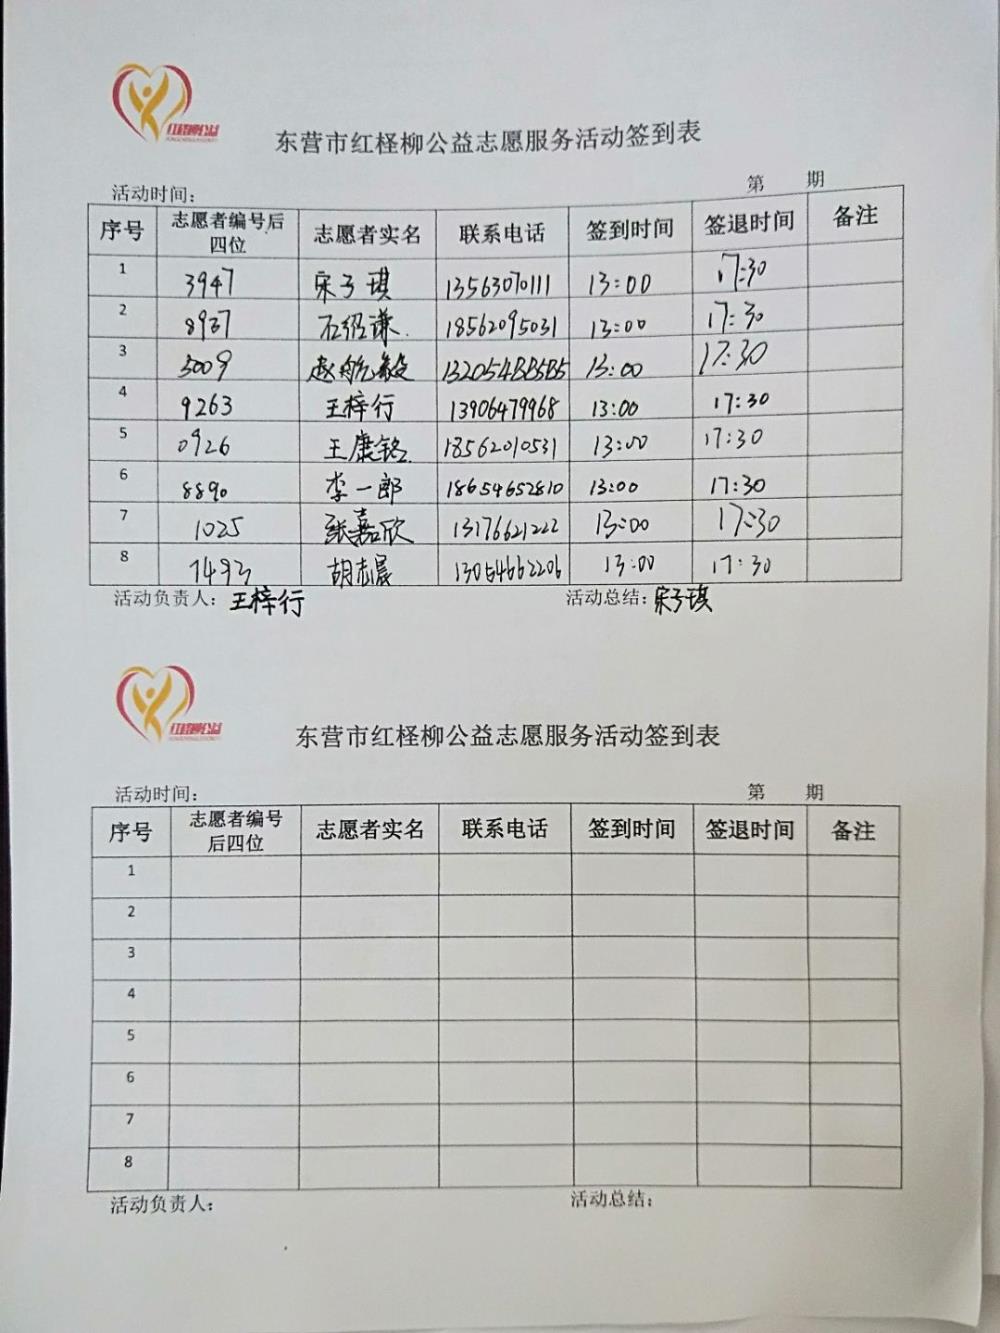 红柽柳公益
东营市红柽柳公益志愿服务活动签到表
活动时间： 第 期
序号 志愿者编号后四位 志愿者实名 联系电话 签到时间 签退时间 备注
1 3947 宋子琪 13563070111 13:00 17:30
2 8937 石经谦 18562095031 13:00 17:30
3 5009 赵航毅 13:00 17:30
4 9263 王梓行 13906479968 13:00 17:30
5 0926 王康铭 18562010531 13:00 17:30
6 8890 李一郎 18654652810 13:00 17:30
7 1025 张嘉欣 13176621222 13:00 17:30
8 7493 胡志晨 13054662206 13:00 17:30
活动负责人：王梓行 活动总结：宋子琪
红柽柳公益
东营市红柽柳公益志愿服务活动签到表
活动时间： 第 期
序号 志愿者编号后四位 志愿者实名 联系电话 签到时间 签退时间 备注
1
2
3
4
5
6
7
8
活动负责人： 活动总结：